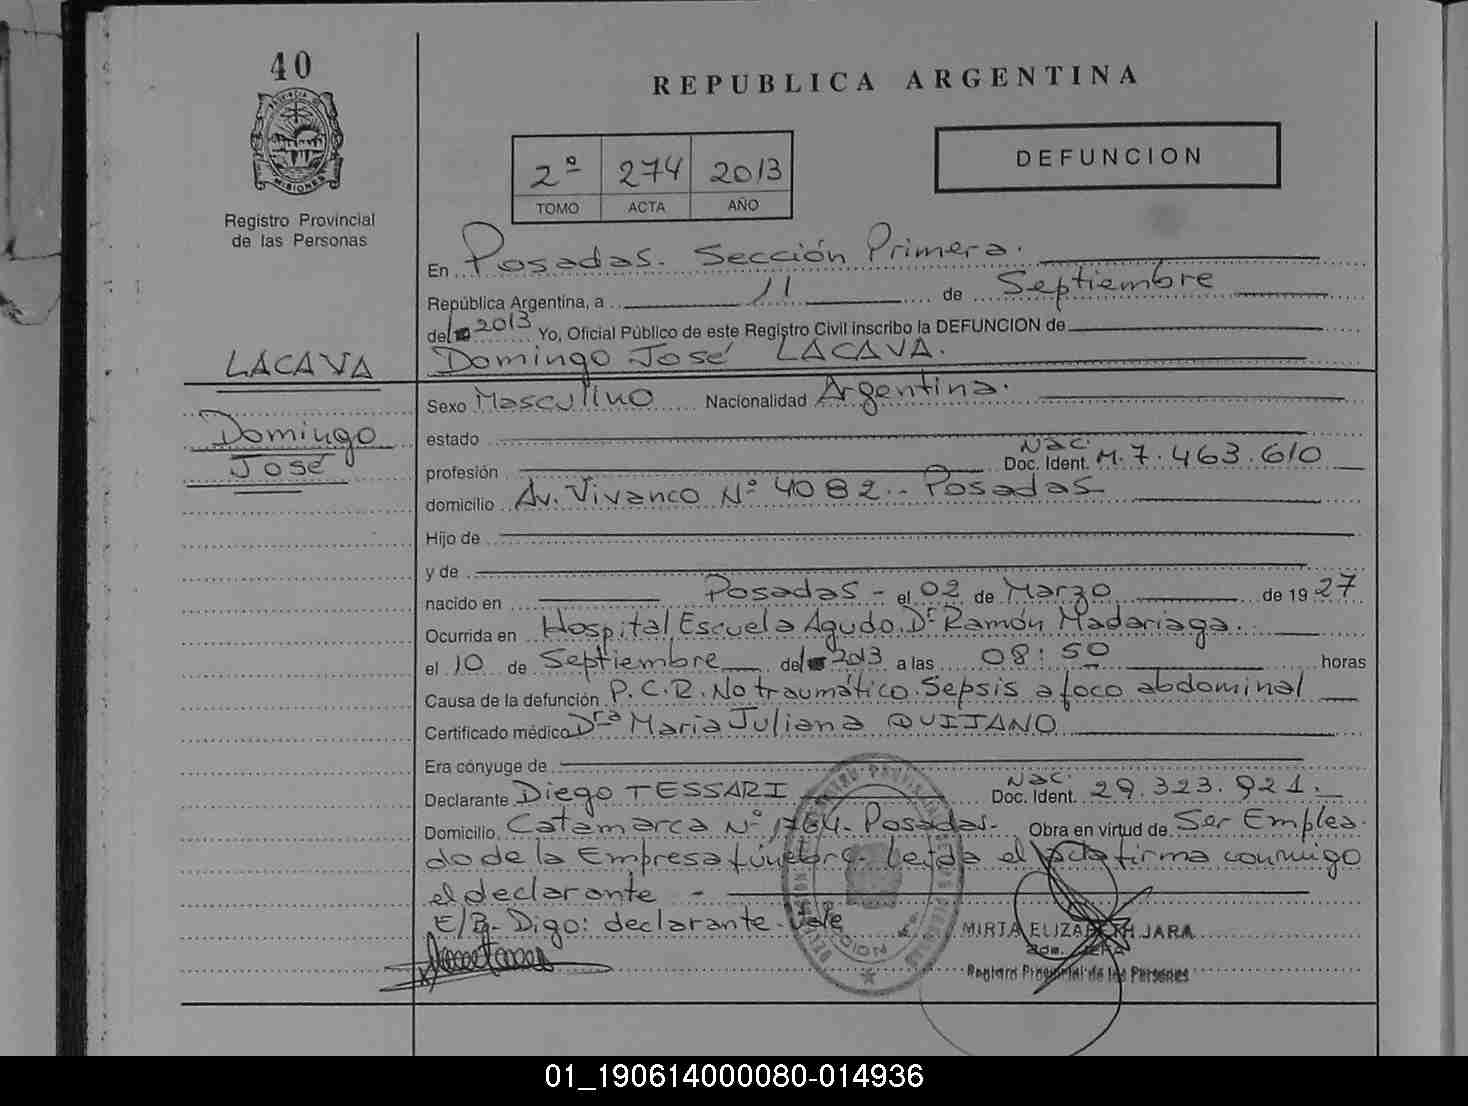 40
PROVINCIA DE
MISIONES
Registro Provincial
de las Personas
REPUBLICA ARGENTINA
2º 274 2013
TOMO ACTA AÑO
DEFUNCION
En Posadas. Sección Primera.
República Argentina, a 11 de Septiembre
del 2013 Yo, Oficial Público de este Registro Civil inscribo la DEFUNCION de
Domingo José LACAVA.
LACAVA
Domingo
José
Sexo Masculino Nacionalidad Argentina.
estado
Nac.
profesión Doc. Ident. M. 7.463.610
domicilio Av. Vivanco Nº 4082.. Posadas
Hijo de
y de
nacido en Posadas - el 02 de Marzo de 1927
Ocurrida en Hospital Escuela Agudo. Dr Ramón Madariaga.
el 10 de Septiembre del 2013 a las 08:50 horas
Causa de la defunción P.C.R. No traumático. Sepsis a foco abdominal
Certificado médico Dra Maria Juliana QUIJANO
Era cónyuge de
Nac.
Declarante Diego TESSARI Doc. Ident. 29.323.921.
Domicilio Catamarca Nº 1764. Posadas. Obra en virtud de Ser Emplea
do de la Empresa fúnebre. Leída el acta firma conmigo
el declarante -
E/B- Digo: declarante. Vale
MIRTA ELIZABETH JARA
Registro Provincial de las Personas
01_190614000080-014936